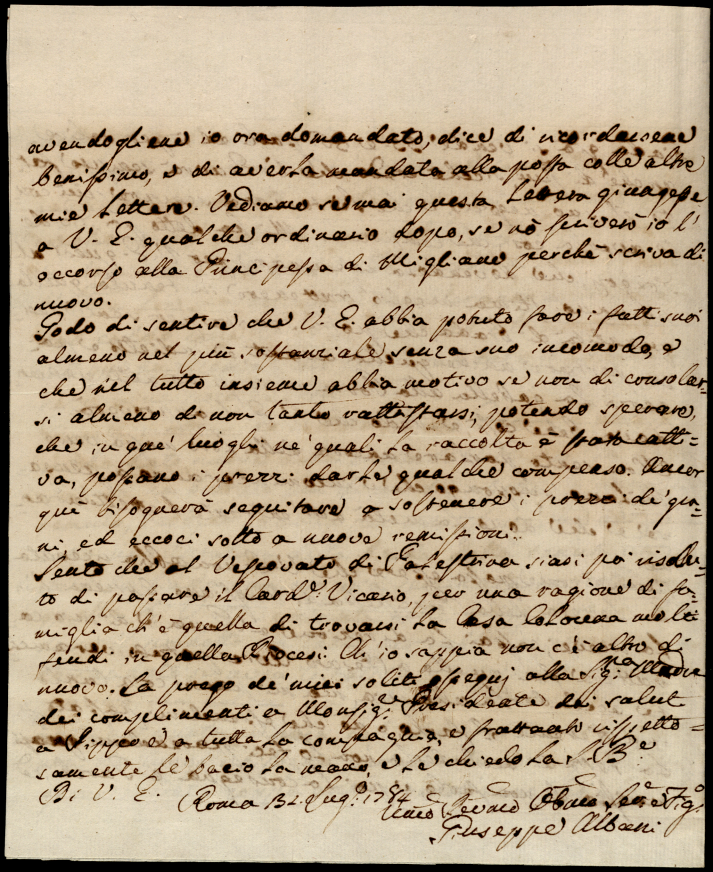 avendogliene io ora domandato, dice di ricordarsene
benissimo, e di averla mandata alla posta colle altre
mie lettere. Vediamo se mai questa lettera giungesse
a V. E. qualche ordinario dopo, se nò scriverò io l'
occorso alla Principessa di Migliano perchè scriva di
nuovo.
Godo di sentire che V. E. abbia potuto fare i fatti suoi
almeno nel più sostanziale senza suo incomodo, e
che nel tutto insieme abbia motivo se non di consolar-
si almeno di non tanto rattristarsi, potendo sperare,
che in que' luoghi ne' quali la raccolta è stata catti-
va, possano i prezzi darle qualche compenso. Ancor
quì bisognerà seguitare a sostenere i prezzi de' gra-
ni, ed eccoci sotto a nuove remissioni.
Sento che al Vescovato di Palestrina siasi poi risolu-
to di passare il Card.e Vicario, per una ragione di fa-
miglia ch'è quella di trovarsi la Casa Colonna molti
feudi in quella Diocesi. Ch'io sappia non c'è altro di
nuovo. La prego de' miei soliti ossequj alla Sig.ra Madre
dei complimenti a Monsig.r Presidente dei saluti
a Pippo e a tutta la compagnia, e frattanto rispetto-
samente le bacio la mano, e le chiedo la S. B.e
Di V. E. Roma 31 Lug.o 1784
Umo Devmo Obmo Ser.e
Giuseppe Albani